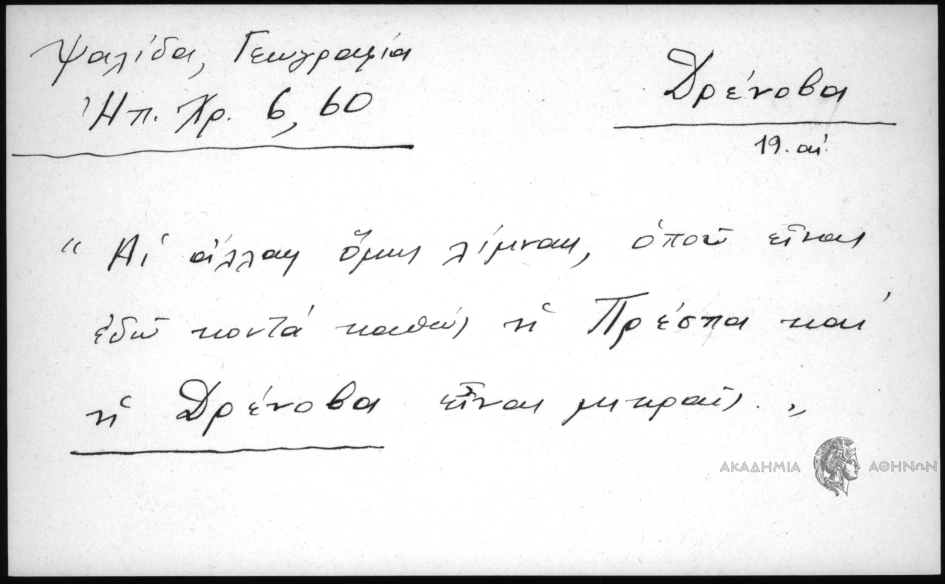 Ψαλίδα, Γεωγραφία
Ἠπ. Χρ. 6, 60
Δρένοβα
19. αἰ.
“ Αἱ ἄλλαι ὅμως λίμναι, ὁποῦ εἶναι
ἐδῶ κοντά καθώς ἡ Πρέσπα καί
ἡ Δρένοβα εἶναι μικραί. „
ΑΚΑΔΗΜΙΑ ΑΘΗΝΩΝ